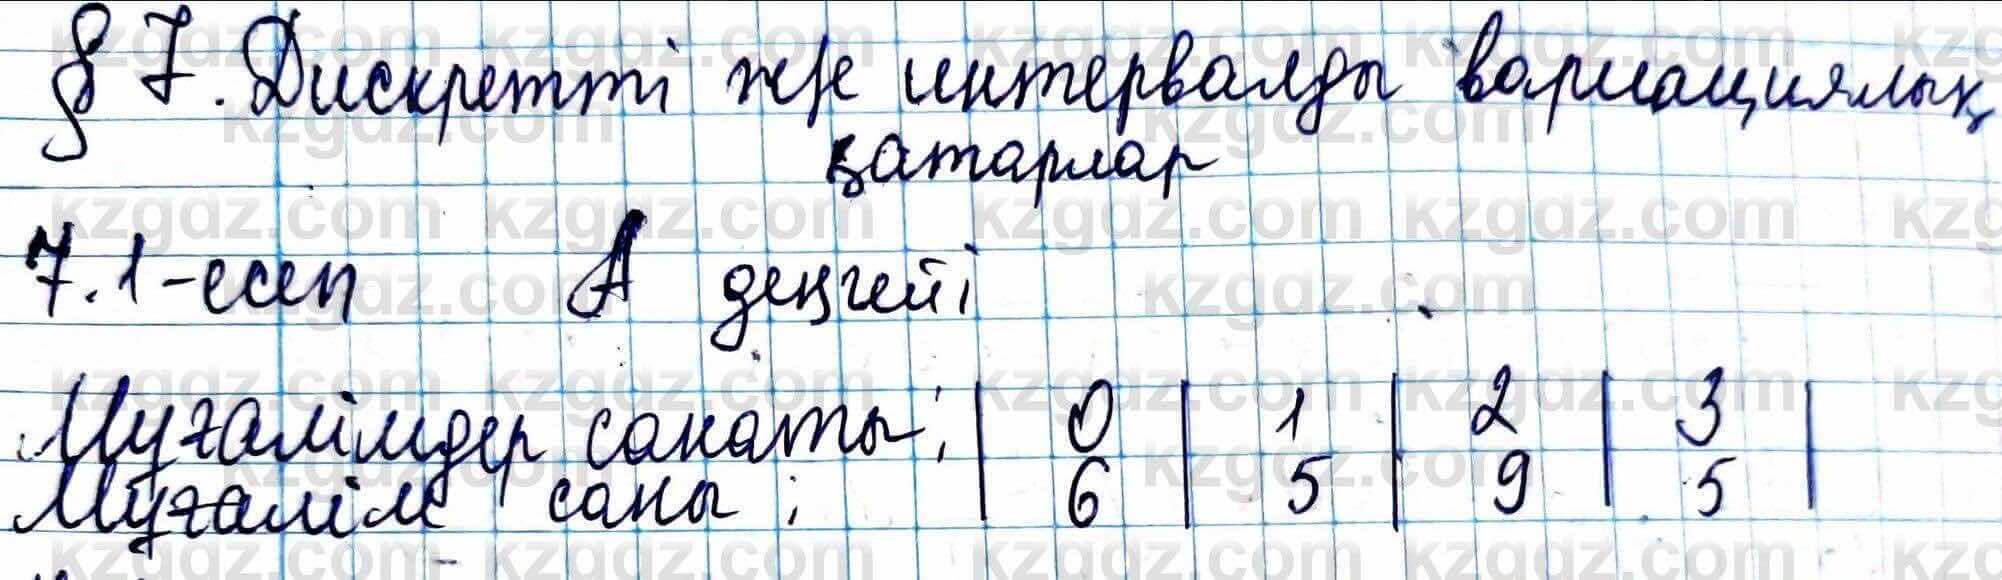 § 7. Дискретті және интервалды вариациялық
қатарлар
7.1-есеп А деңгейі
Мұғалімдер санаты: | 0 | 1 | 2 | 3 |
Мұғалім саны: | 6 | 5 | 9 | 5 |
kzgdz.com